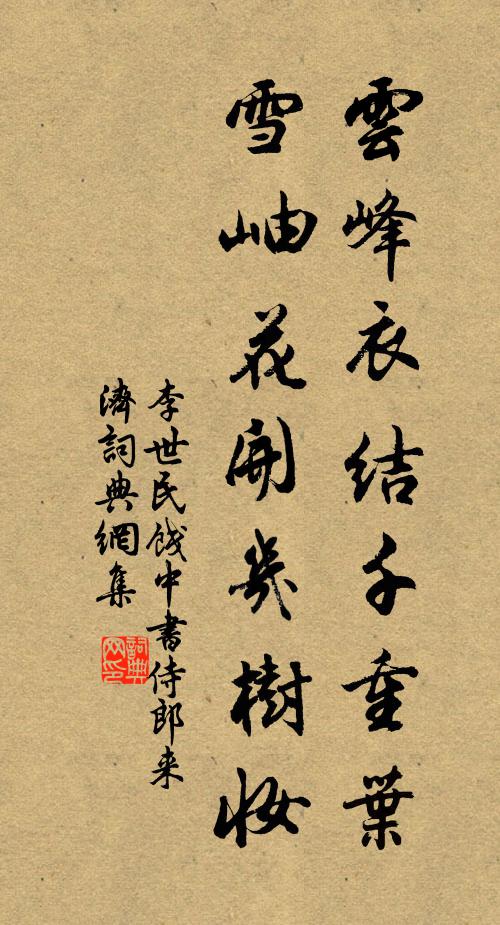 雲峰衣結千重葉
雪岫花開幾樹妝
李世民餞中書侍郎来
濟詞典網集
詞典
网印